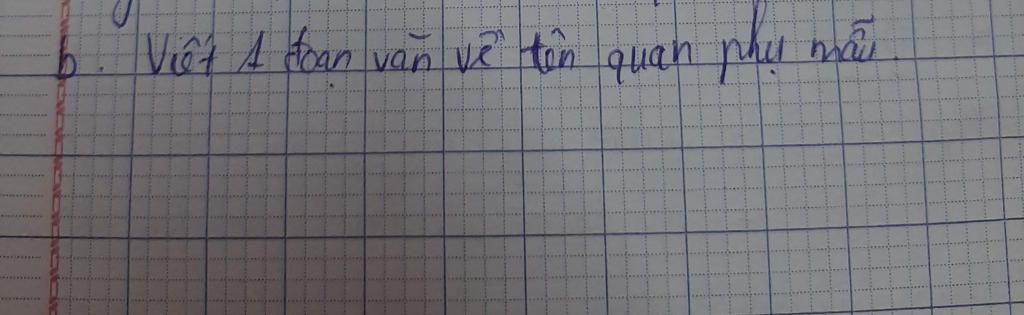 b. Viết 1 đoạn văn về tên quan phụ mẫu.